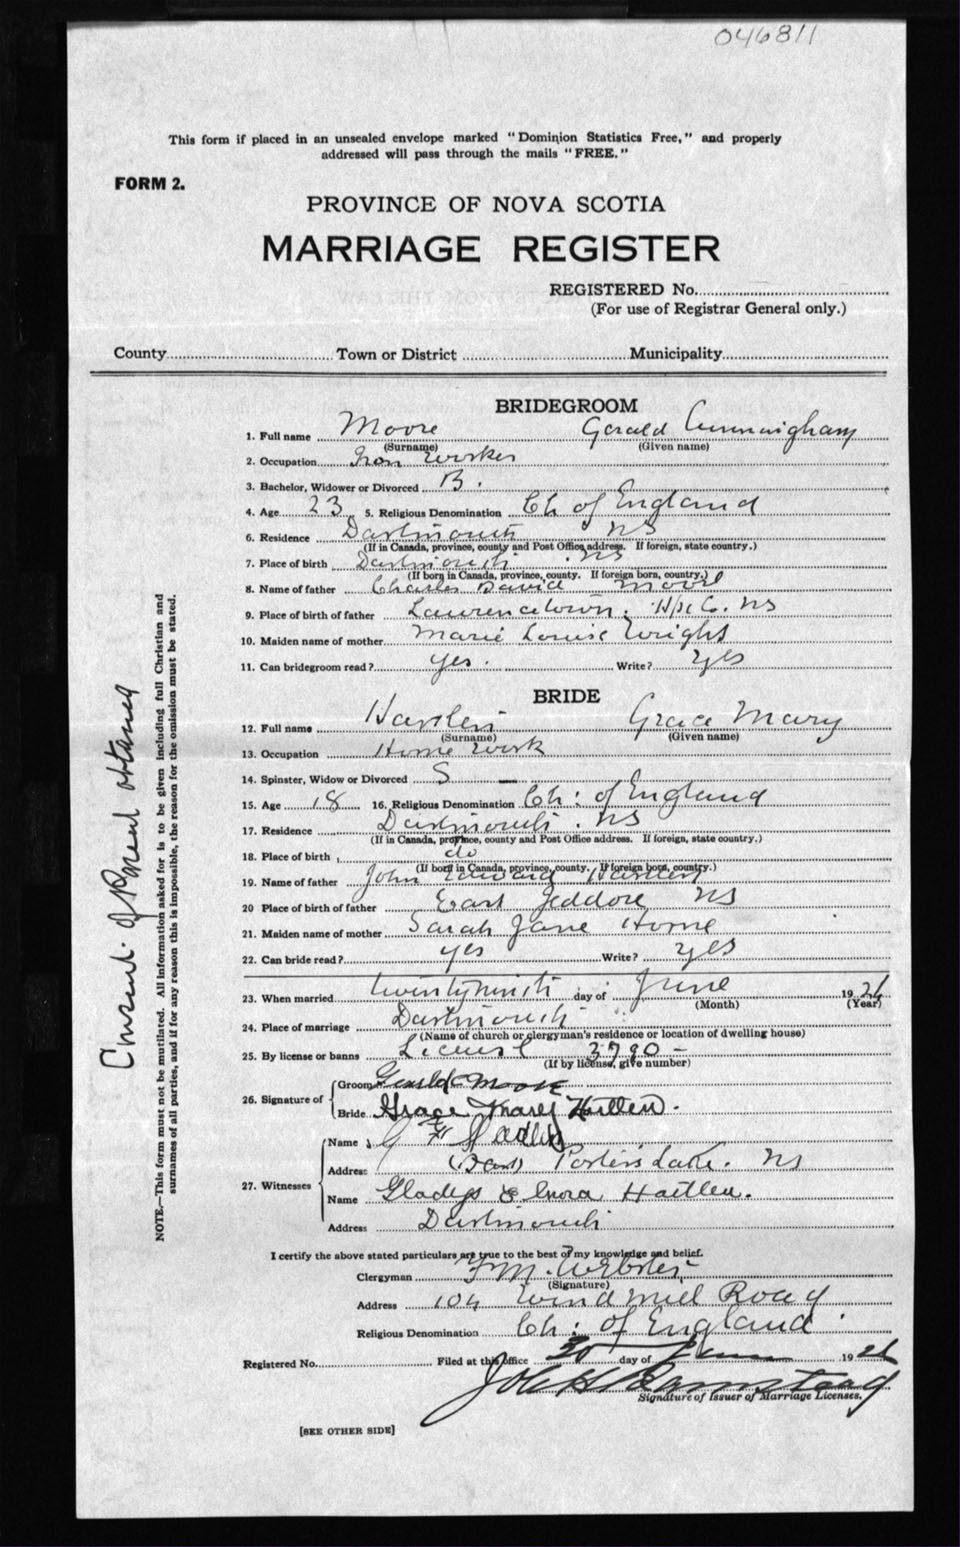 046811
This form if placed in an unsealed envelope marked "Dominion Statistics Free," and properly
addressed will pass through the mails "FREE."
FORM 2.
PROVINCE OF NOVA SCOTIA
MARRIAGE REGISTER
REGISTERED No.
(For use of Registrar General only.)
County Town or District Municipality
BRIDEGROOM
1. Full name Moore Gerald Cunningham
(Surname) (Given name)
2. Occupation Iron Worker
3. Bachelor, Widower or Divorced B.
4. Age 23 5. Religious Denomination Ch of England
6. Residence Dartmouth NS
(If in Canada, province, county and Post Office address. If foreign, state country.)
7. Place of birth Dartmouth NS
(If born in Canada, province, county. If foreign born, country.)
8. Name of father Charles David Moore
9. Place of birth of father Lawrencetown. Hfx Co. NS
10. Maiden name of mother Marie Louise Wright
11. Can bridegroom read? yes. Write? yes
BRIDE
12. Full name Hartlen Grace Mary
(Surname) (Given name)
13. Occupation Home Work
14. Spinster, Widow or Divorced S —
15. Age 18 16. Religious Denomination Ch: of England
17. Residence Dartmouth. NS
(If in Canada, province, county and Post Office address. If foreign, state country.)
18. Place of birth do
(If born in Canada, province, county. If foreign born, country.)
19. Name of father John Edward Hartlen
20 Place of birth of father East Jeddore NS
21. Maiden name of mother Sarah Jane Horne
22. Can bride read? yes Write? yes
23. When married twentyninth day of June 1926
(Month) (Year)
24. Place of marriage Dartmouth
(Name of church or clergyman's residence or location of dwelling house)
25. By license or banns License 3790 -
(If by license, give number)
26. Signature of Groom Gerald C Moore
Bride Grace Mary Hartlen.
27. Witnesses
Name
Address Porters Lake. NS
Name Gladys Elnora Hartlen.
Address Dartmouth
I certify the above stated particulars are true to the best of my knowledge and belief.
Clergyman F M. Webster
(Signature)
Address 104 Windmill Road
Religious Denomination Ch: of England.
Registered No. Filed at this office 30 day of June 1926
Signature of Issuer of Marriage Licenses.
[SEE OTHER SIDE]
Consent of Parent obtained
NOTE.—This form must not be mutilated. All information asked for is to be given including full Christian and
surnames of all parties, and if for any reason this is impossible, the reason for the omission must be stated.